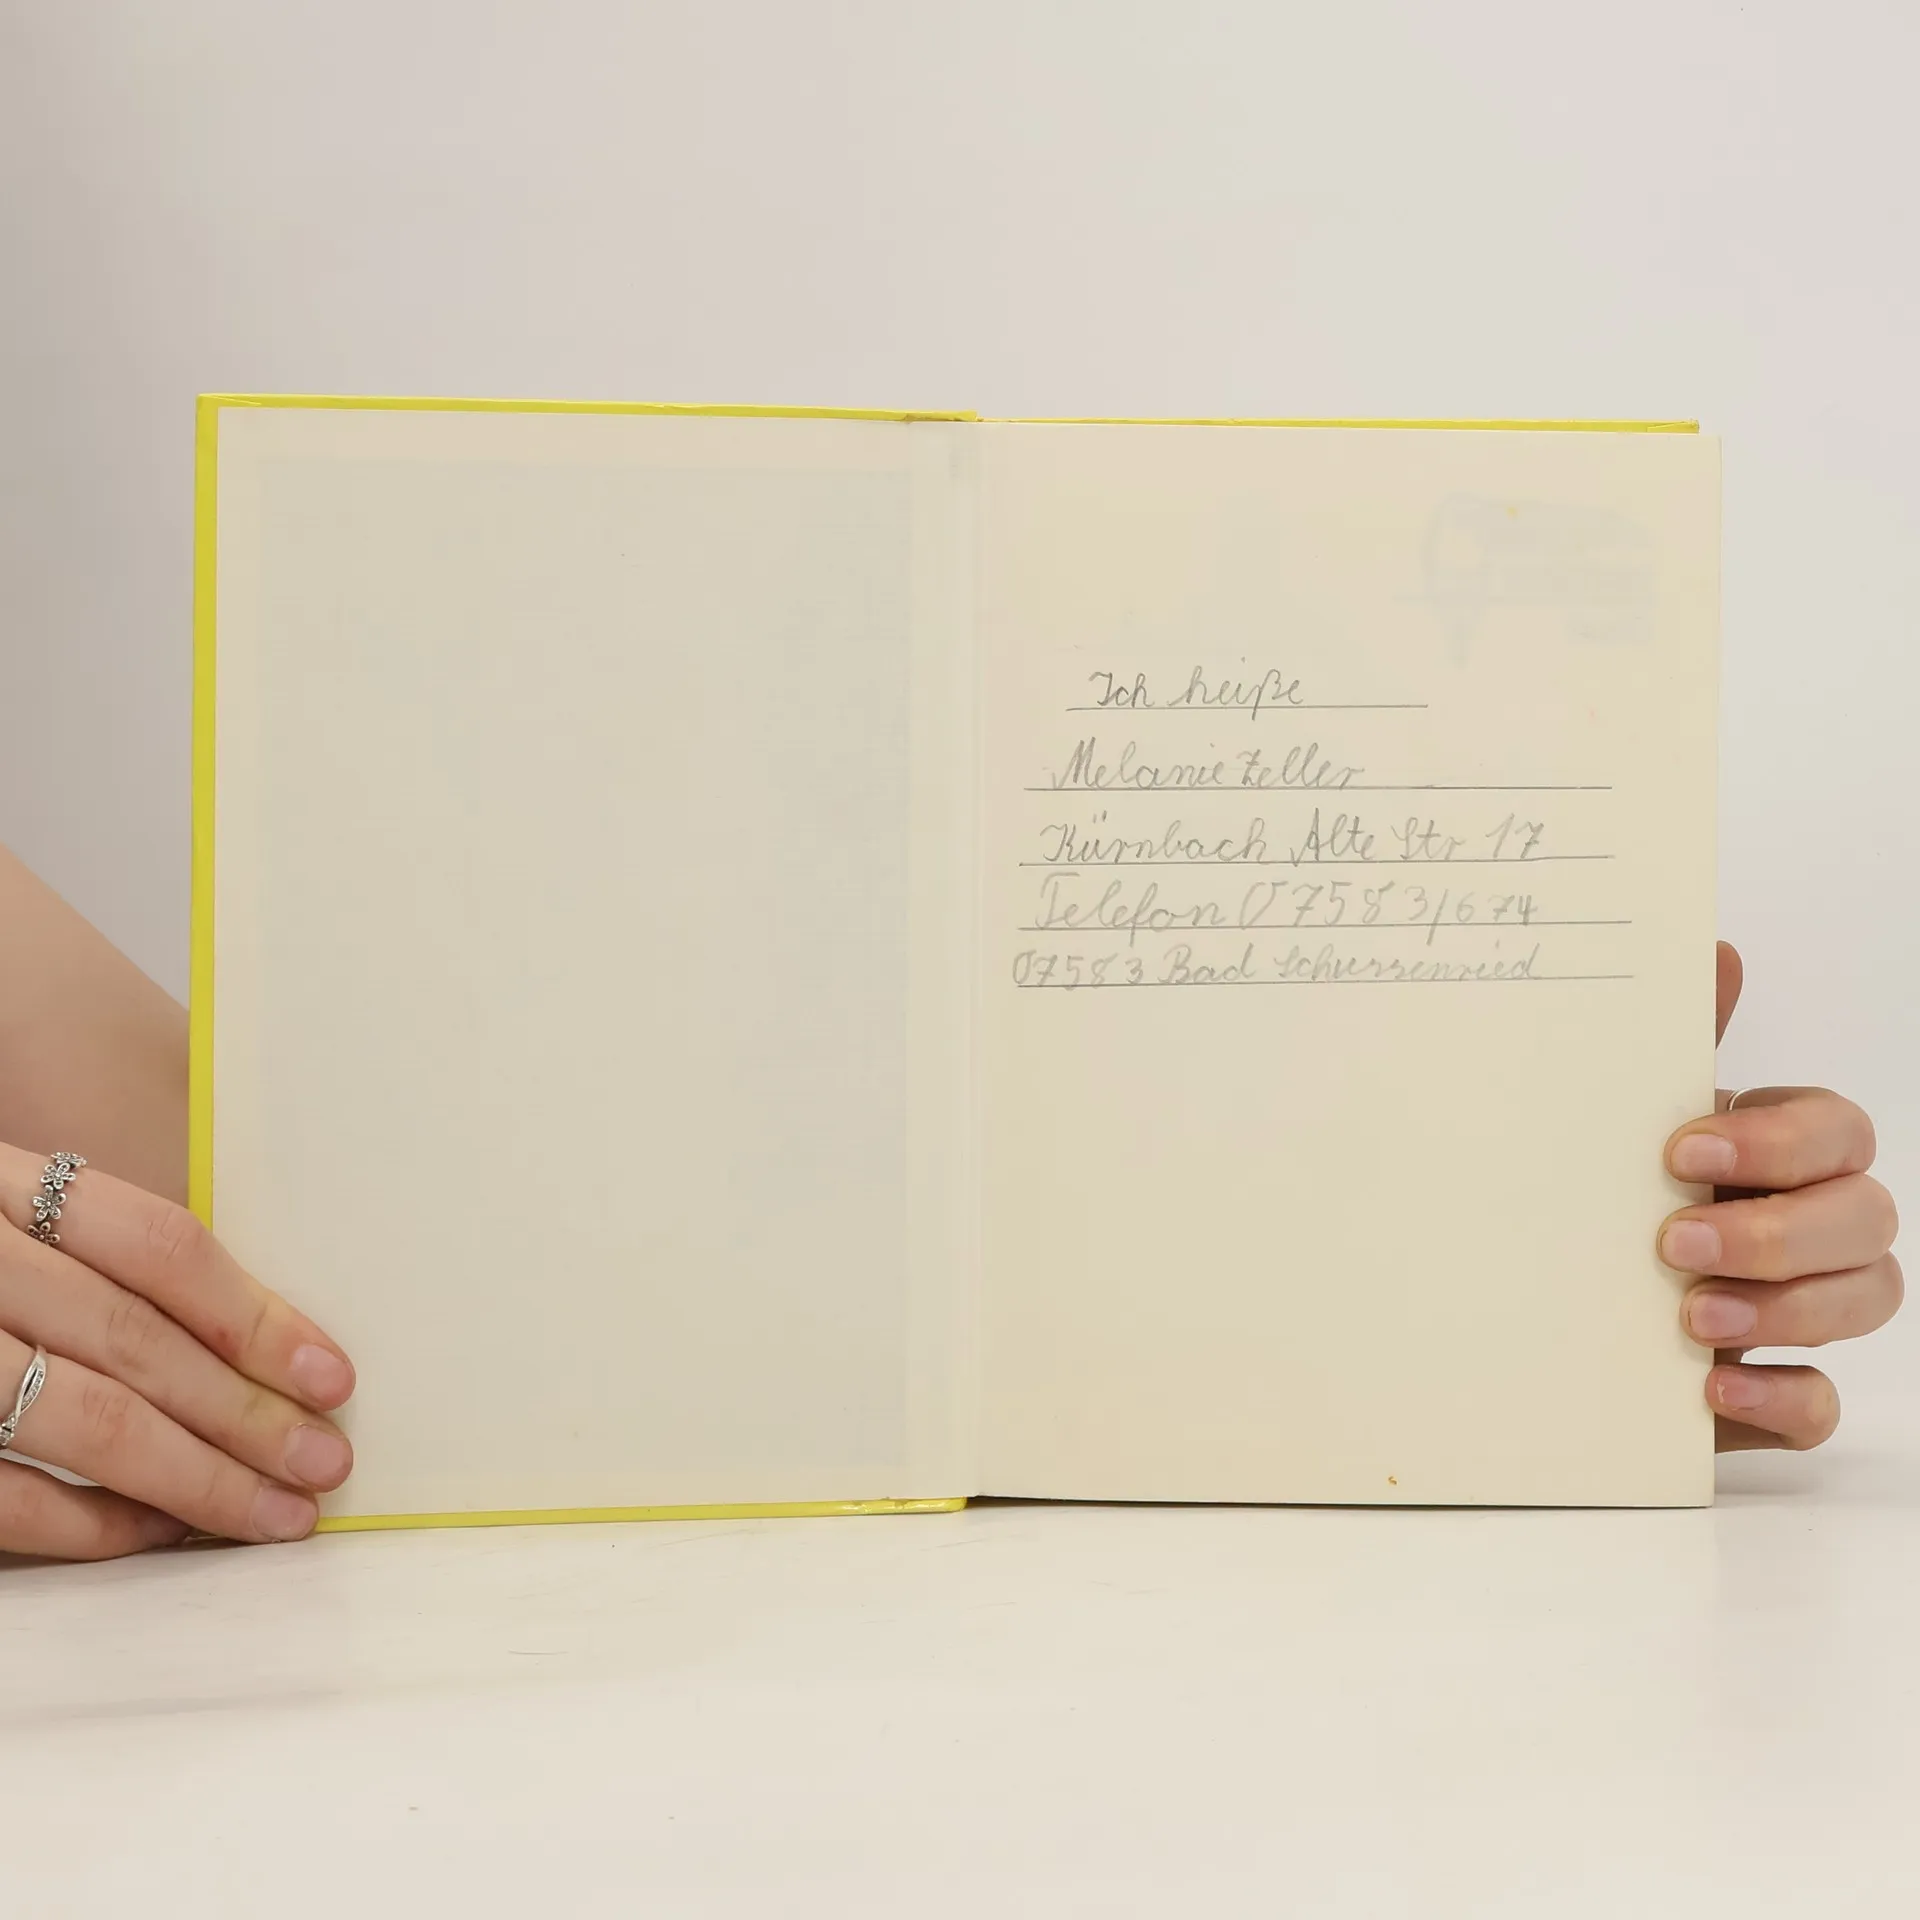 Ich heiße
Melanie Zeller
Kürnbach Alte Str 17
Telefon 07583/674
07583 Bad Schussenried